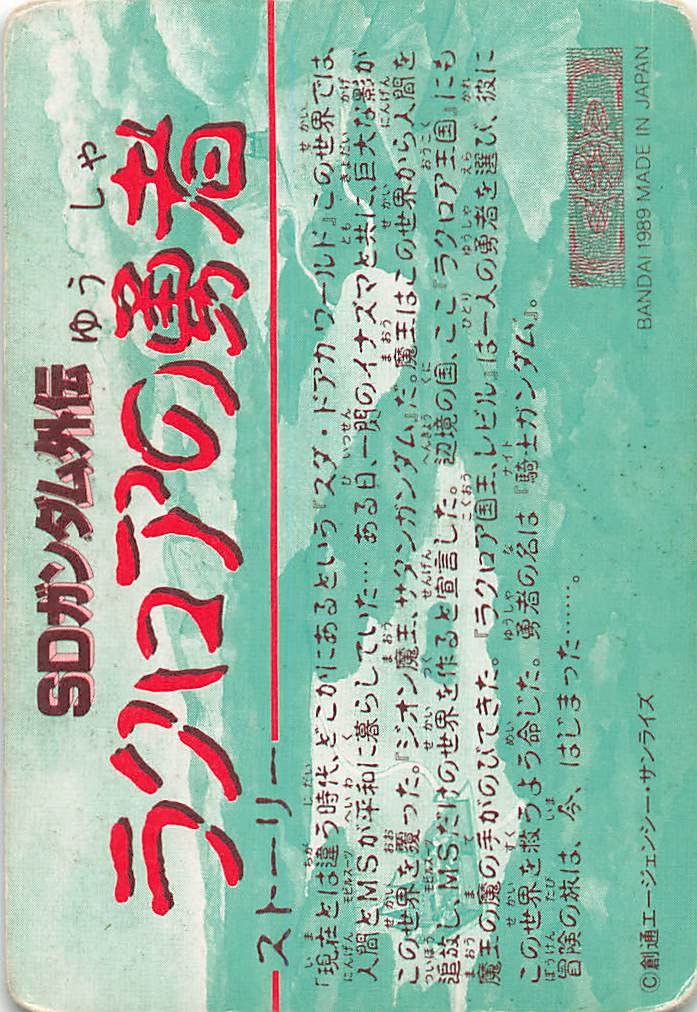 SDガンダム外伝
ラクロアの勇者
ゆうしゃ
ストーリー
「現在とは違う時代、どこかにあるという『スダ・ドアカワールド』この世界では、
人間とMSが平和に暮らしていた…ある日、一閃のイナズマと共に、巨大な影が
この世界を覆った。『ジオン魔王、サタンガンダム』だ。魔王はこの世界から人間を
追放し、MSだけの世界を作ると宣言した。辺境の国、ここ『ラクロア王国』にも
魔王の魔の手がのびてきた。『ラクロア国王、レビル』は一人の勇者を選び、彼に
この世界を救うよう命じた。勇者の名は『騎士ガンダム』。
冒険の旅は、今、はじまった……。
©創通エージェンシー・サンライズ
BANDAI 1989 MADE IN JAPAN